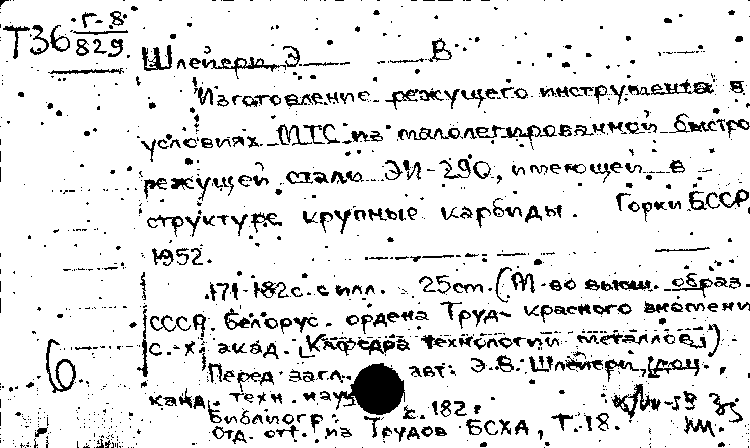 Т36 Г-8
829
Шлейери Э В
Изготовление режущего инструмента в
условиях МТС из малолегированной быстро
режущей стали ЭИ-290, имеющей в
структуре крупные карбиды. Горки БССР,
1952.
171-182с. с илл. 25см. (М-во высш. образ.
СССР. Белорус. ордена Труд- красного знамени
с.-х. акад. Кафедра технологии металлов)
Перед загл. авт: Э.В. Шлейери, доц.,
канд. техн. наук
Библиогр: с. 182.
Отд. отт. из Трудов БСХА, Т.18.
6